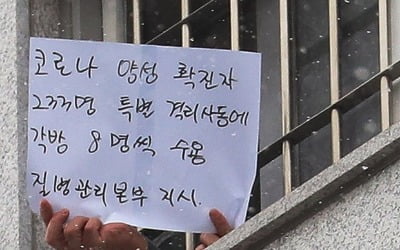 코로나 양성 확진자
233명 특별 격리사동에
각방 8명씩 수용
질병관리본부 지시.